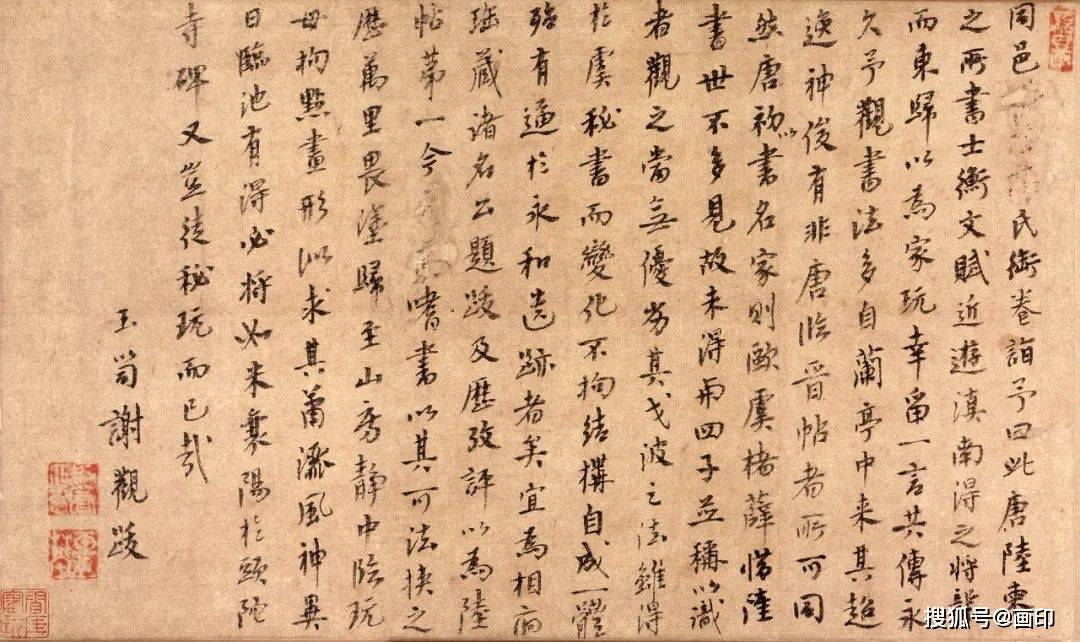 同邑氏卷詣予曰此唐陸柬
之所書士衡文賦近遊滇南得之將
而東歸以為家玩幸留一言其傳永
久予觀書法多自蘭亭中来其超
逸神俊有非唐臨晉帖者所可同
然唐初以書名家則歐虞褚薛惜陸
書世不多見故未得而四子並稱以識
者觀之當無優劣其戈波之法雖得
於虞秘書而變化不拘結構自成一體
殆有逼於永和遺跡者矣宜為相府
珍藏諸名公題跋及歷攷評以為陸
帖第一今嗜書以其可法挾之
歷萬里畏塗歸至山齋靜中臨玩
毋拘點畫形似求其蕭流風神異
日臨池有得必將如米襄陽於頭陀
寺碑又豈徒秘玩而已哉
玉笥謝觀跋
搜狐号@画印